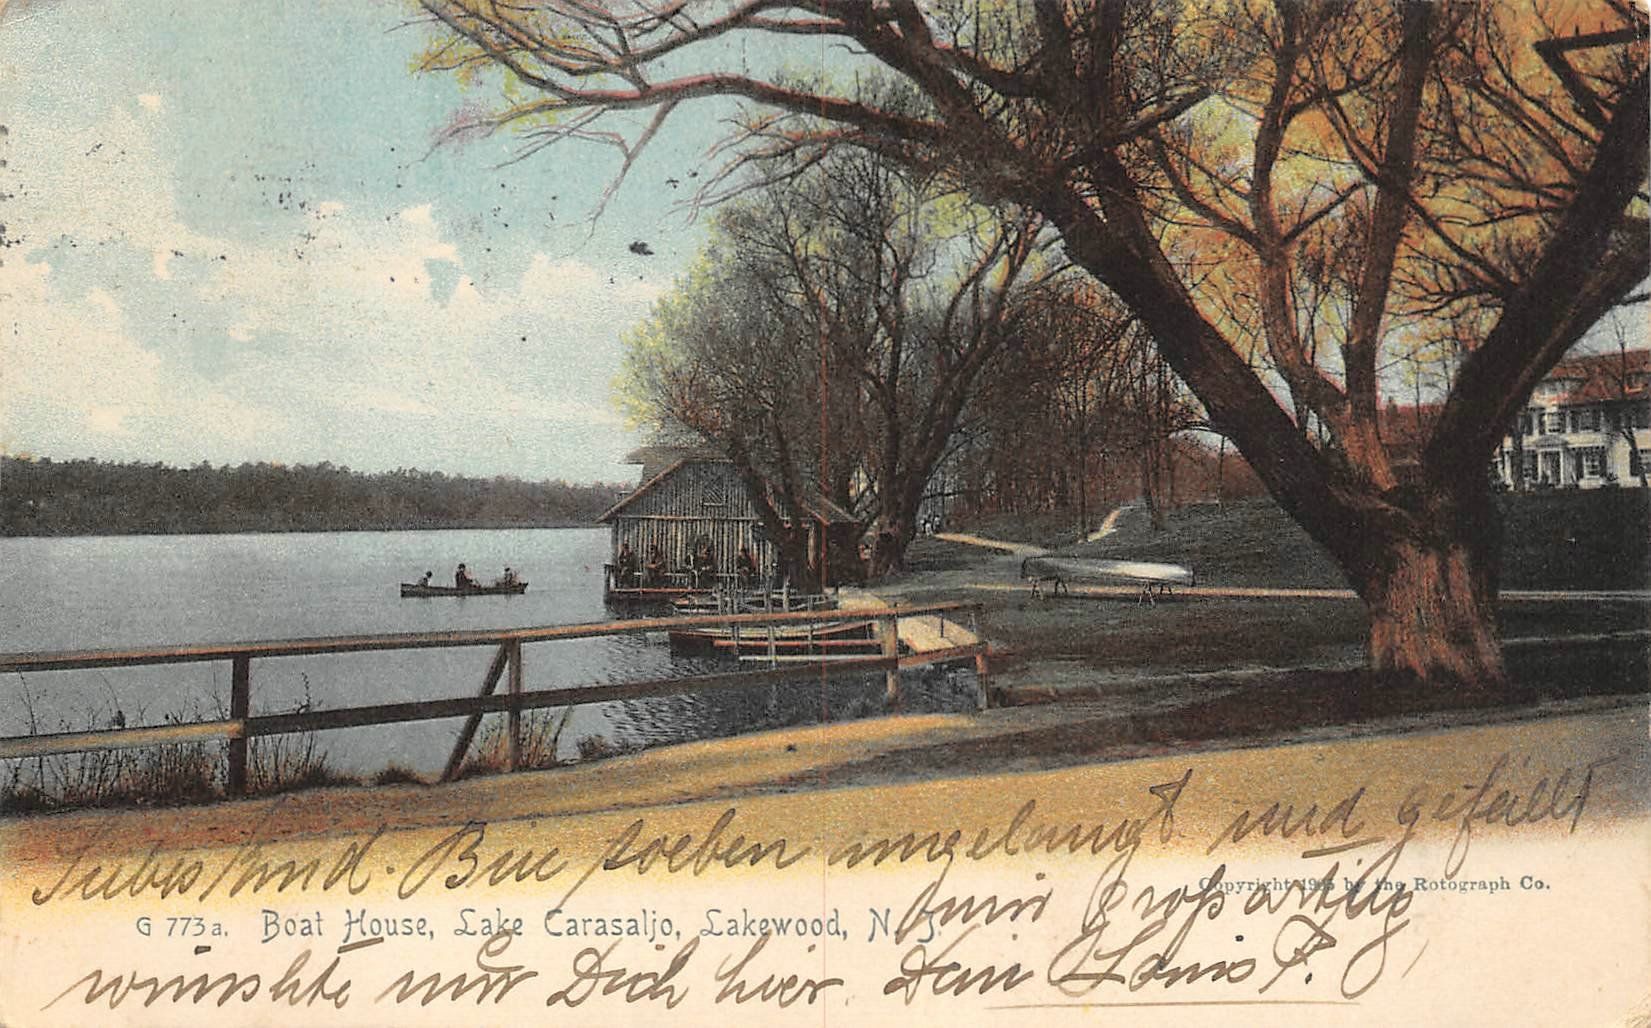 Liebes Kind. Bin soeben angelangt und gefällt
Copyright 1905 by the Rotograph Co.
mir großartig,
G 773a. Boat House, Lake Carasaljo, Lakewood, N. J.
wünschte nur Dich hier. Dein Louis P.